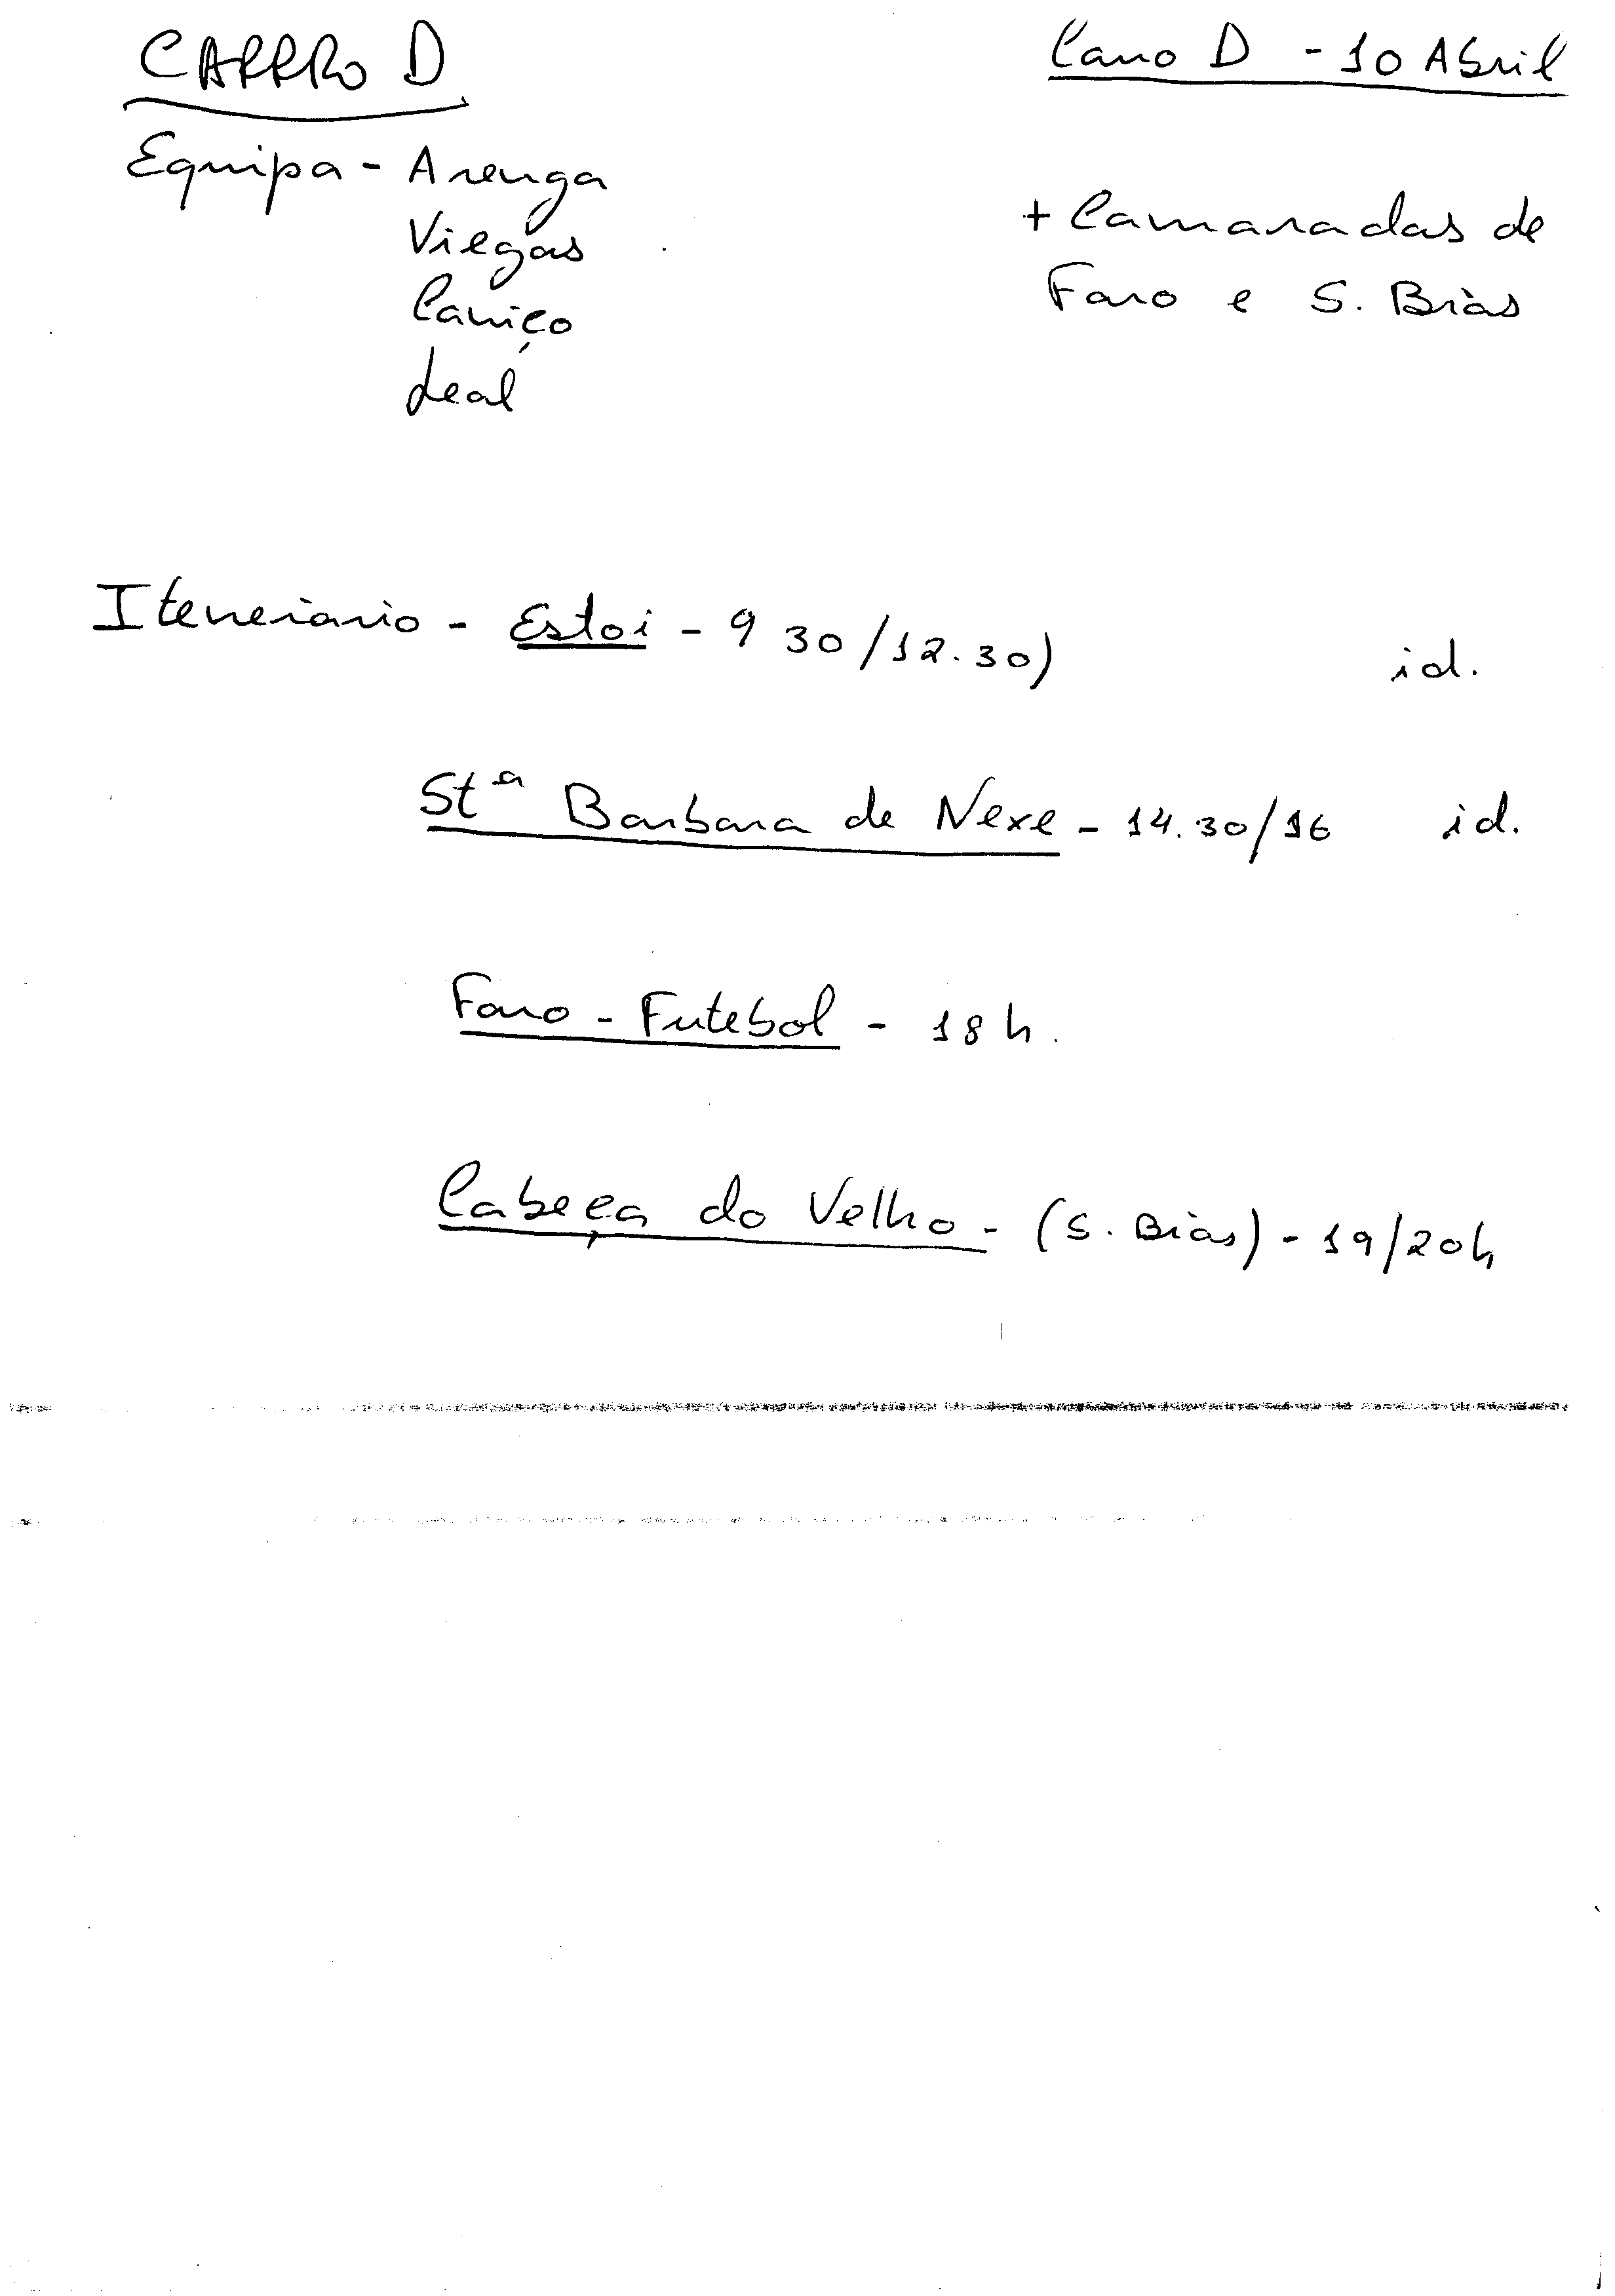 CARRO D
Carro D - 10 Abril
Equipa - Arenga
Viegas
Caniço
Leal
+ Camaradas de
Faro e S. Bràs
Itenerario - Estoi - 9 30/12.30) id.
Stª Barbara de Nexe - 14.30/16 id.
Faro - Futebol - 18 h.
Cabeça do Velho - (S. Bràs) - 19/20h